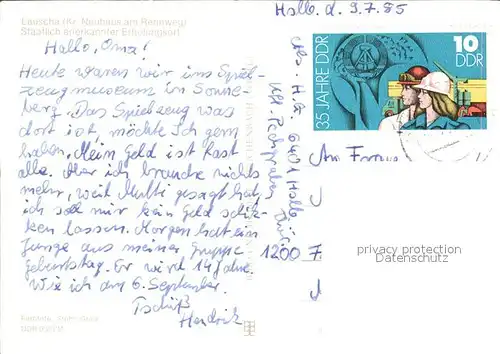 Lauscha (Kr. Neuhaus am Rennweg)
Staatlich anerkannter Erholungsort
Hallo, Oma!
Heute waren wir ins Spiel-
zeugmuseum in Sonne-
berg. Das Spielzeug was
dort ist, möchte Ich gern
haben. Mein Geld ist fast
alle. Aber ich brauche nichts
mehr, weil Mutti gesagt hat,
ich soll mir kein Geld schik-
ken lassen. Morgen hat ein
Junge aus meiner Gruppe
Geburtstag. Er wird 14 Jahre.
Wie ich am 6. September.
Tschüß
Hendrik
Halb. d. 9.7.85
35 JAHRE DDR
10
DDR
6401
An Frau
1200
privacy protection
Datenschutz